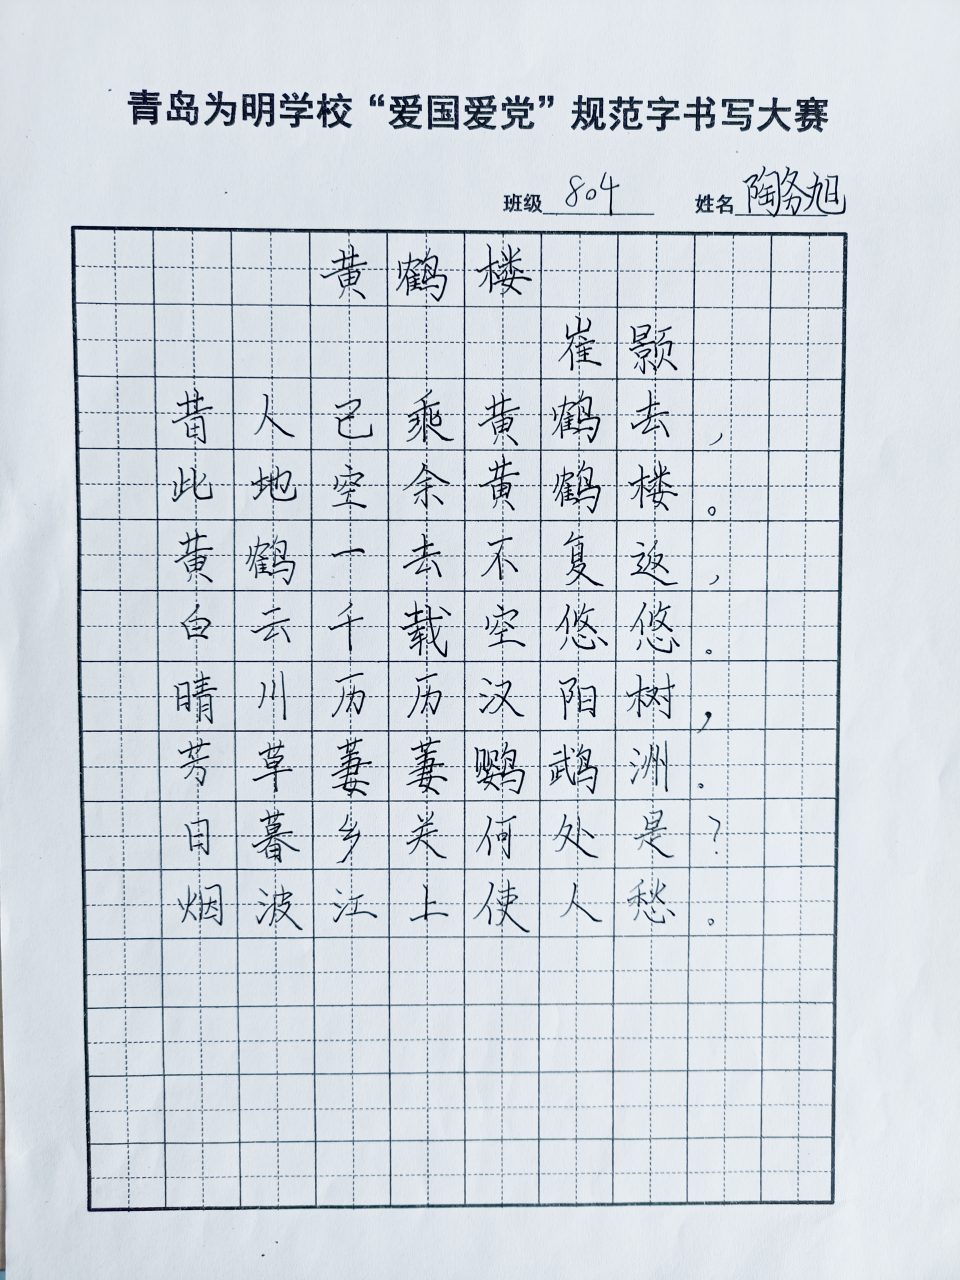 青岛为明学校“爱国爱党”规范字书写大赛
班级 804 姓名 陶务旭
黄鹤楼
崔颢
昔人已乘黄鹤去，
此地空余黄鹤楼。
黄鹤一去不复返，
白云千载空悠悠。
晴川历历汉阳树，
芳草萋萋鹦鹉洲。
日暮乡关何处是？
烟波江上使人愁。